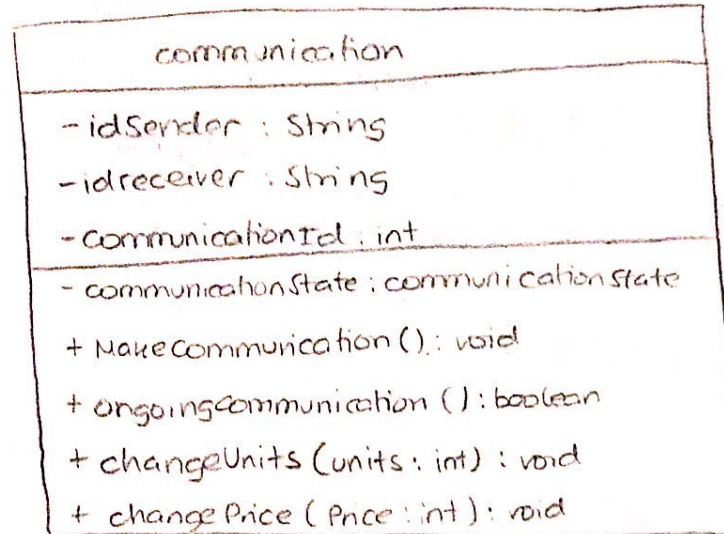 communication
- idSender : String
- idreceiver : String
- communicationId : int
- communicationState : communicationState
+ Makecommunication() : void
+ ongoingcommunication () : boolean
+ changeUnits (units : int) : void
+ changePrice (Price : int) : void